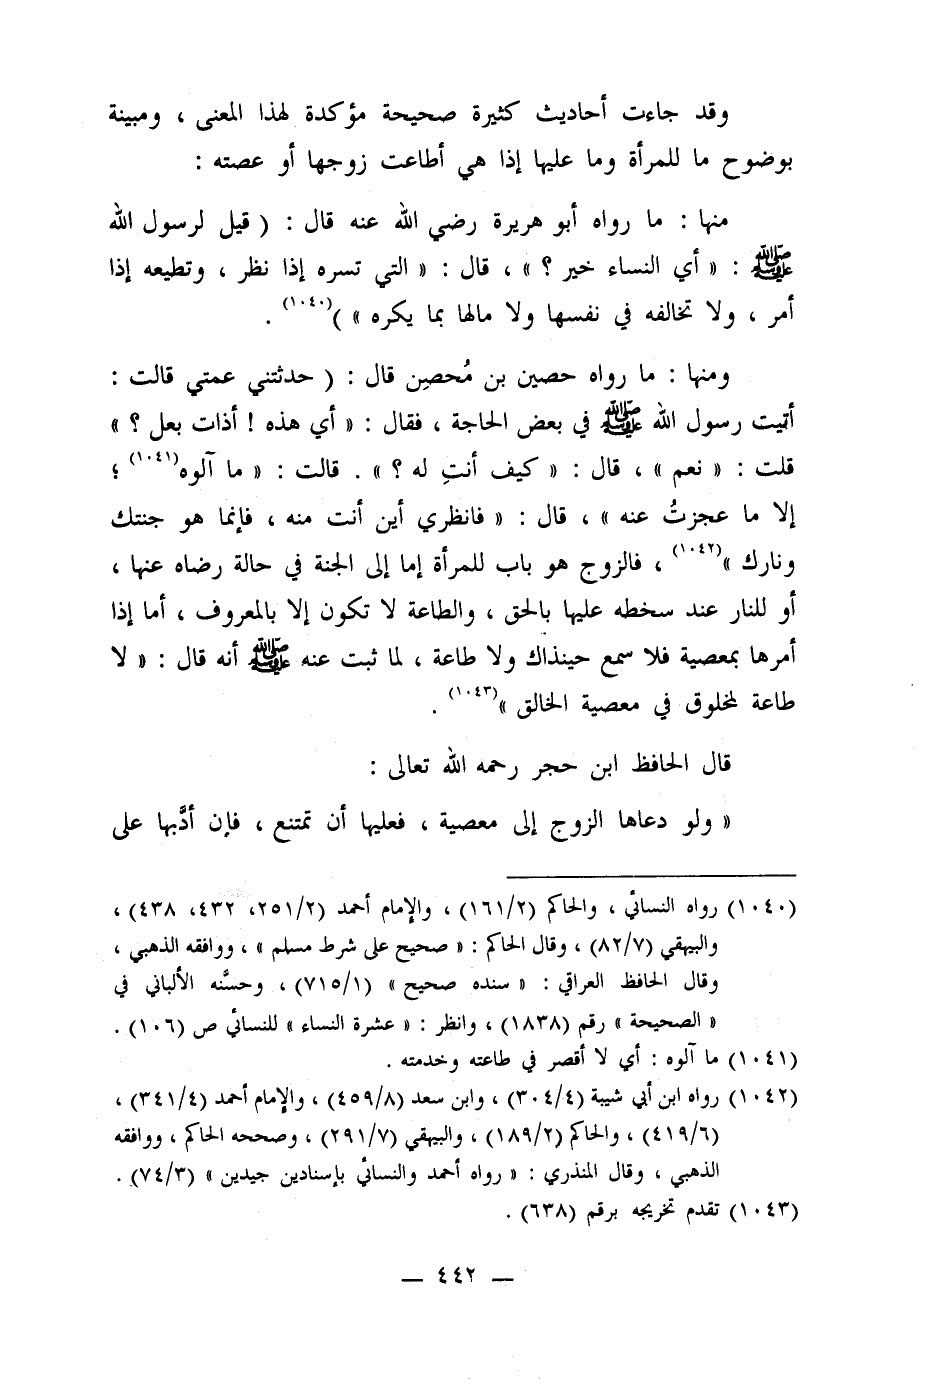 وقد جاءت أحاديث كثيرة صحيحة مؤكدة لهذا المعنى ، ومبينة
بوضوح ما للمرأة وما عليها إذا هي أطاعت زوجها أو عصته :
منها : ما رواه أبو هريرة رضي الله عنه قال : ( قيل لرسول الله
ﷺ : « أي النساء خير ؟ » ، قال : « التي تسره إذا نظر ، وتطيعه إذا
أمر ، ولا تخالفه في نفسها ولا مالها بما يكره » )(١٠٤٠) .
ومنها : ما رواه حصين بن مُحصِن قال : ( حدثتني عمتي قالت :
أتيت رسول الله ﷺ في بعض الحاجة ، فقال : « أي هذه ! أذات بعل ؟ »
قلت : « نعم » ، قال : « كيف أنتِ له ؟ » . قالت : « ما آلوه(١٠٤١) ؛
إلا ما عجزتُ عنه » ، قال : « فانظري أين أنت منه ، فإنما هو جنتك
ونارك »(١٠٤٢) ، فالزوج هو باب للمرأة إما إلى الجنة في حالة رضاه عنها ،
أو للنار عند سخطه عليها بالحق ، والطاعة لا تكون إلا بالمعروف ، أما إذا
أمرها بمعصية فلا سمع حينذاك ولا طاعة ، لما ثبت عنه ﷺ أنه قال : « لا
طاعة لمخلوق في معصية الخالق »(١٠٤٣) .
قال الحافظ ابن حجر رحمه الله تعالى :
« ولو دعاها الزوج إلى معصية ، فعليها أن تمتنع ، فإن أدَّبها على
(١٠٤٠) رواه النسائي ، والحاكم (١٦١/٢) ، والإمام أحمد (٢٥١/٢، ٤٣٢، ٤٣٨) ،
والبيهقي (٨٢/٧) ، وقال الحاكم : « صحيح على شرط مسلم » ، ووافقه الذهبي ،
وقال الحافظ العراقي : « سنده صحيح » (٧١٥/١) ، وحسَّنه الألباني في
« الصحيحة » رقم (١٨٣٨) ، وانظر : « عشرة النساء » للنسائي ص (١٠٦) .
(١٠٤١) ما آلوه : أي لا أقصر في طاعته وخدمته .
(١٠٤٢) رواه ابن أبي شيبة (٣٠٤/٤) ، وابن سعد (٤٥٩/٨) ، والإمام أحمد (٣٤١/٤) ،
(٤١٩/٦) ، والحاكم (١٨٩/٢) ، والبيهقي (٢٩١/٧) ، وصححه الحاكم ، ووافقه
الذهبي ، وقال المنذري : « رواه أحمد والنسائي بإسنادين جيدين » (٧٤/٣) .
(١٠٤٣) تقدم تخريجه برقم (٦٣٨) .
— ٤٤٢ —